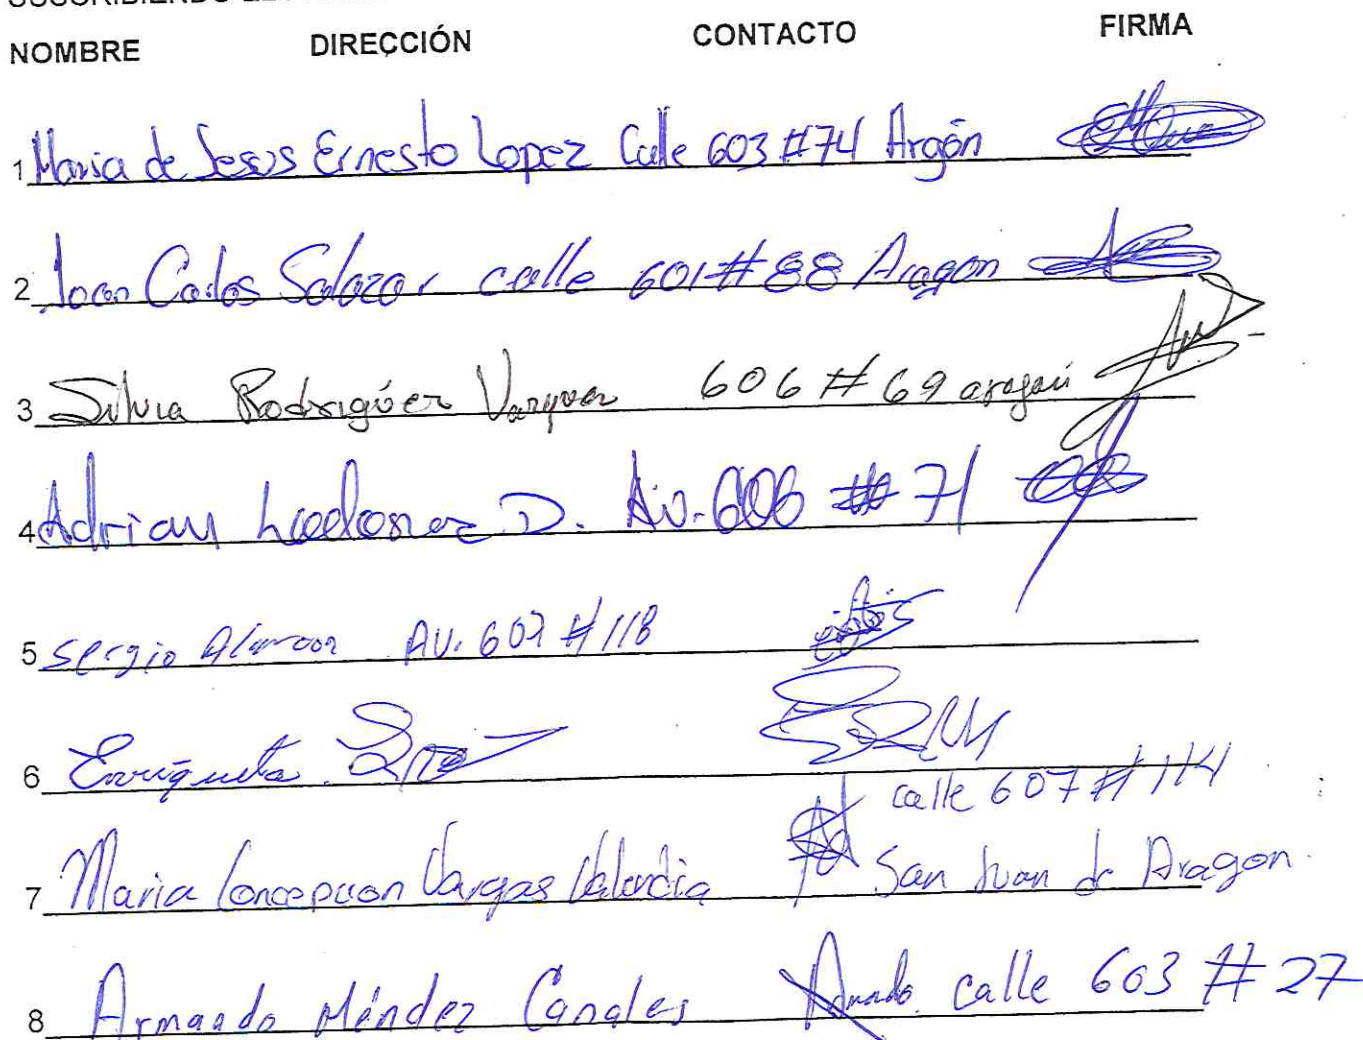 NOMBRE DIRECCIÓN CONTACTO FIRMA
1 Maria de Jesus Ernesto Lopez Calle 603 #74 Aragón
2 Joan Carlos Salazar calle 601 #88 Aragon
3 Silvia Rodriguez 606 # 69 aragon
4 Adrian D. Av. 606 # 71
5 Sergio Alarcon AV. 607 #118
6 Enriqueta
calle 607 # 114
7 Maria Concepcion Vargas San Juan de Aragon
8 Armando Méndez Canales calle 603 # 27